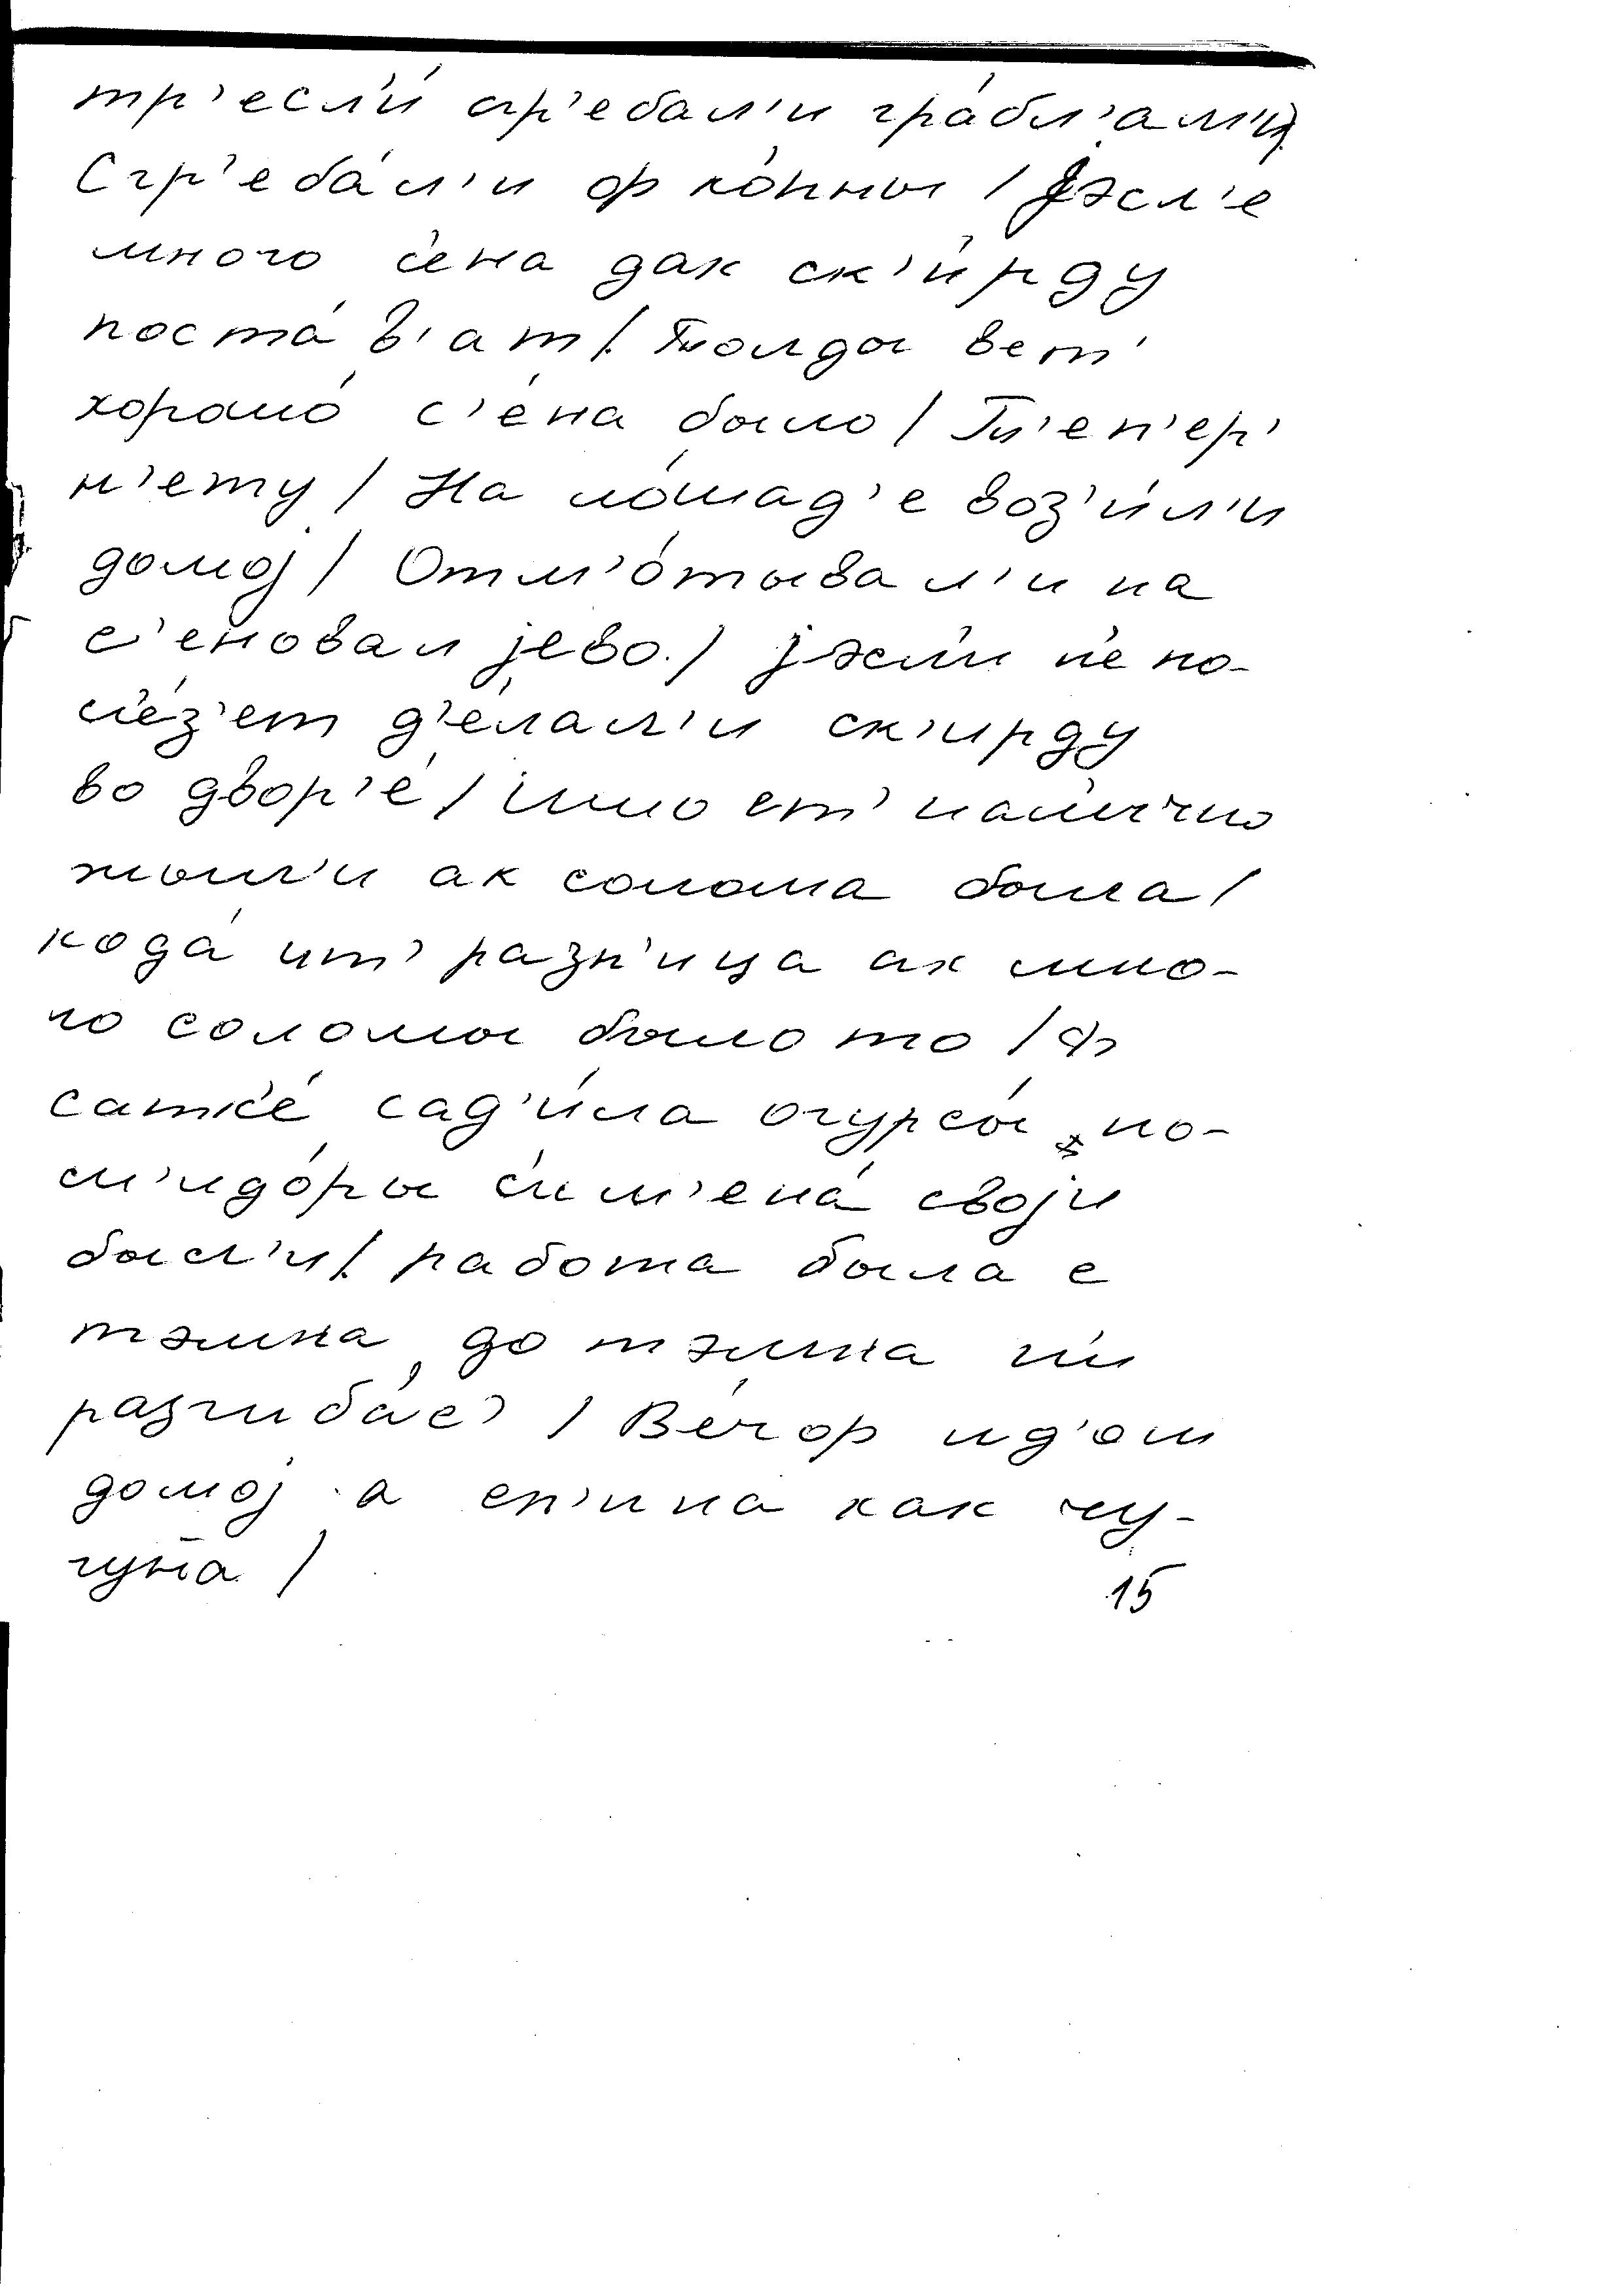 тр'есл'и́ згр'ебал'и гра́бл'ам'и/
Сгр'еба́л'и ф ко́пны / Jэсл'е
много с'ена дак ск'и́рду
поста́в'ат /. Толды вет'
хорошо́ с'е́на было / Т'еп'ер'
н'ету / На ло́шад'е воз'и́л'и
домоj / Отм'о́тывал'и на
с'еновал jево. / jэсл'и н'е по-
л'е́з'ет д'е́лал'и ск'ирду
во двор'е́ / што ет'
жыл'и ак солома была /
кода́ ит' разн'ица ак мно-
го соломы было то / Ф
сатк'е́ сад'и́ла огурсы́ по-
м'идо́ры с'им'ена́ своjи
был'и /. работа была с
тэмна до тэмна н'и
разгиба́с' / Ве́чор ид'ош
домоj а сп'ина как чу-
гуна /
15